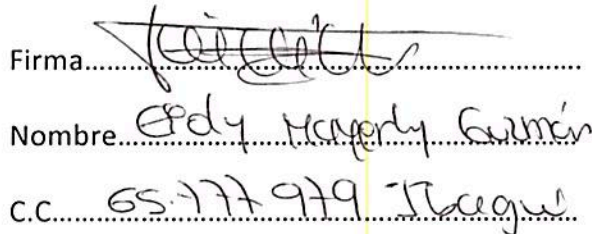 Firma
Nombre Eidy Mayerly Guzmán
C.C. 65.777 979 Ibagué